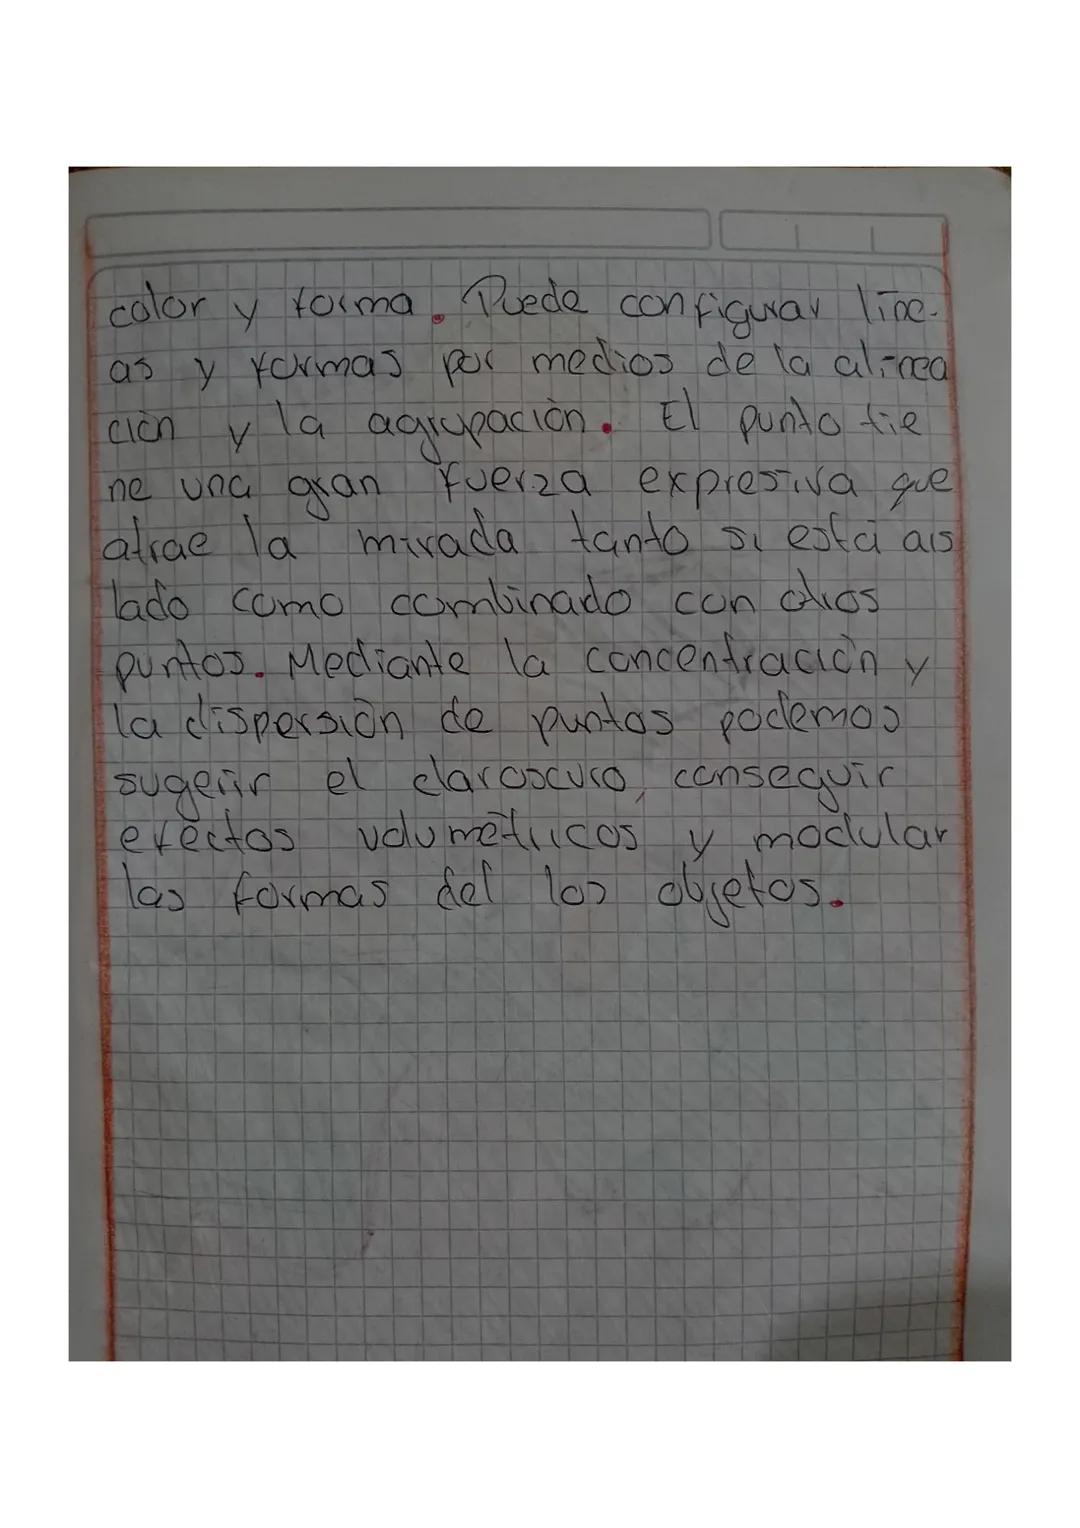 color y forma. Puede configurar líne-
as y formas por medios de la alinea
ción y la agrupación. El punto tie
ne una gran fuerza expresiva que
atrae la mirada tanto si está ais
lado como combinado con otros
puntos. Mediante la concentración y
la dispersión de puntos podemos
sugerir el claroscuro, conseguir
efectos volumétricos y modular
las formas del los objetos.